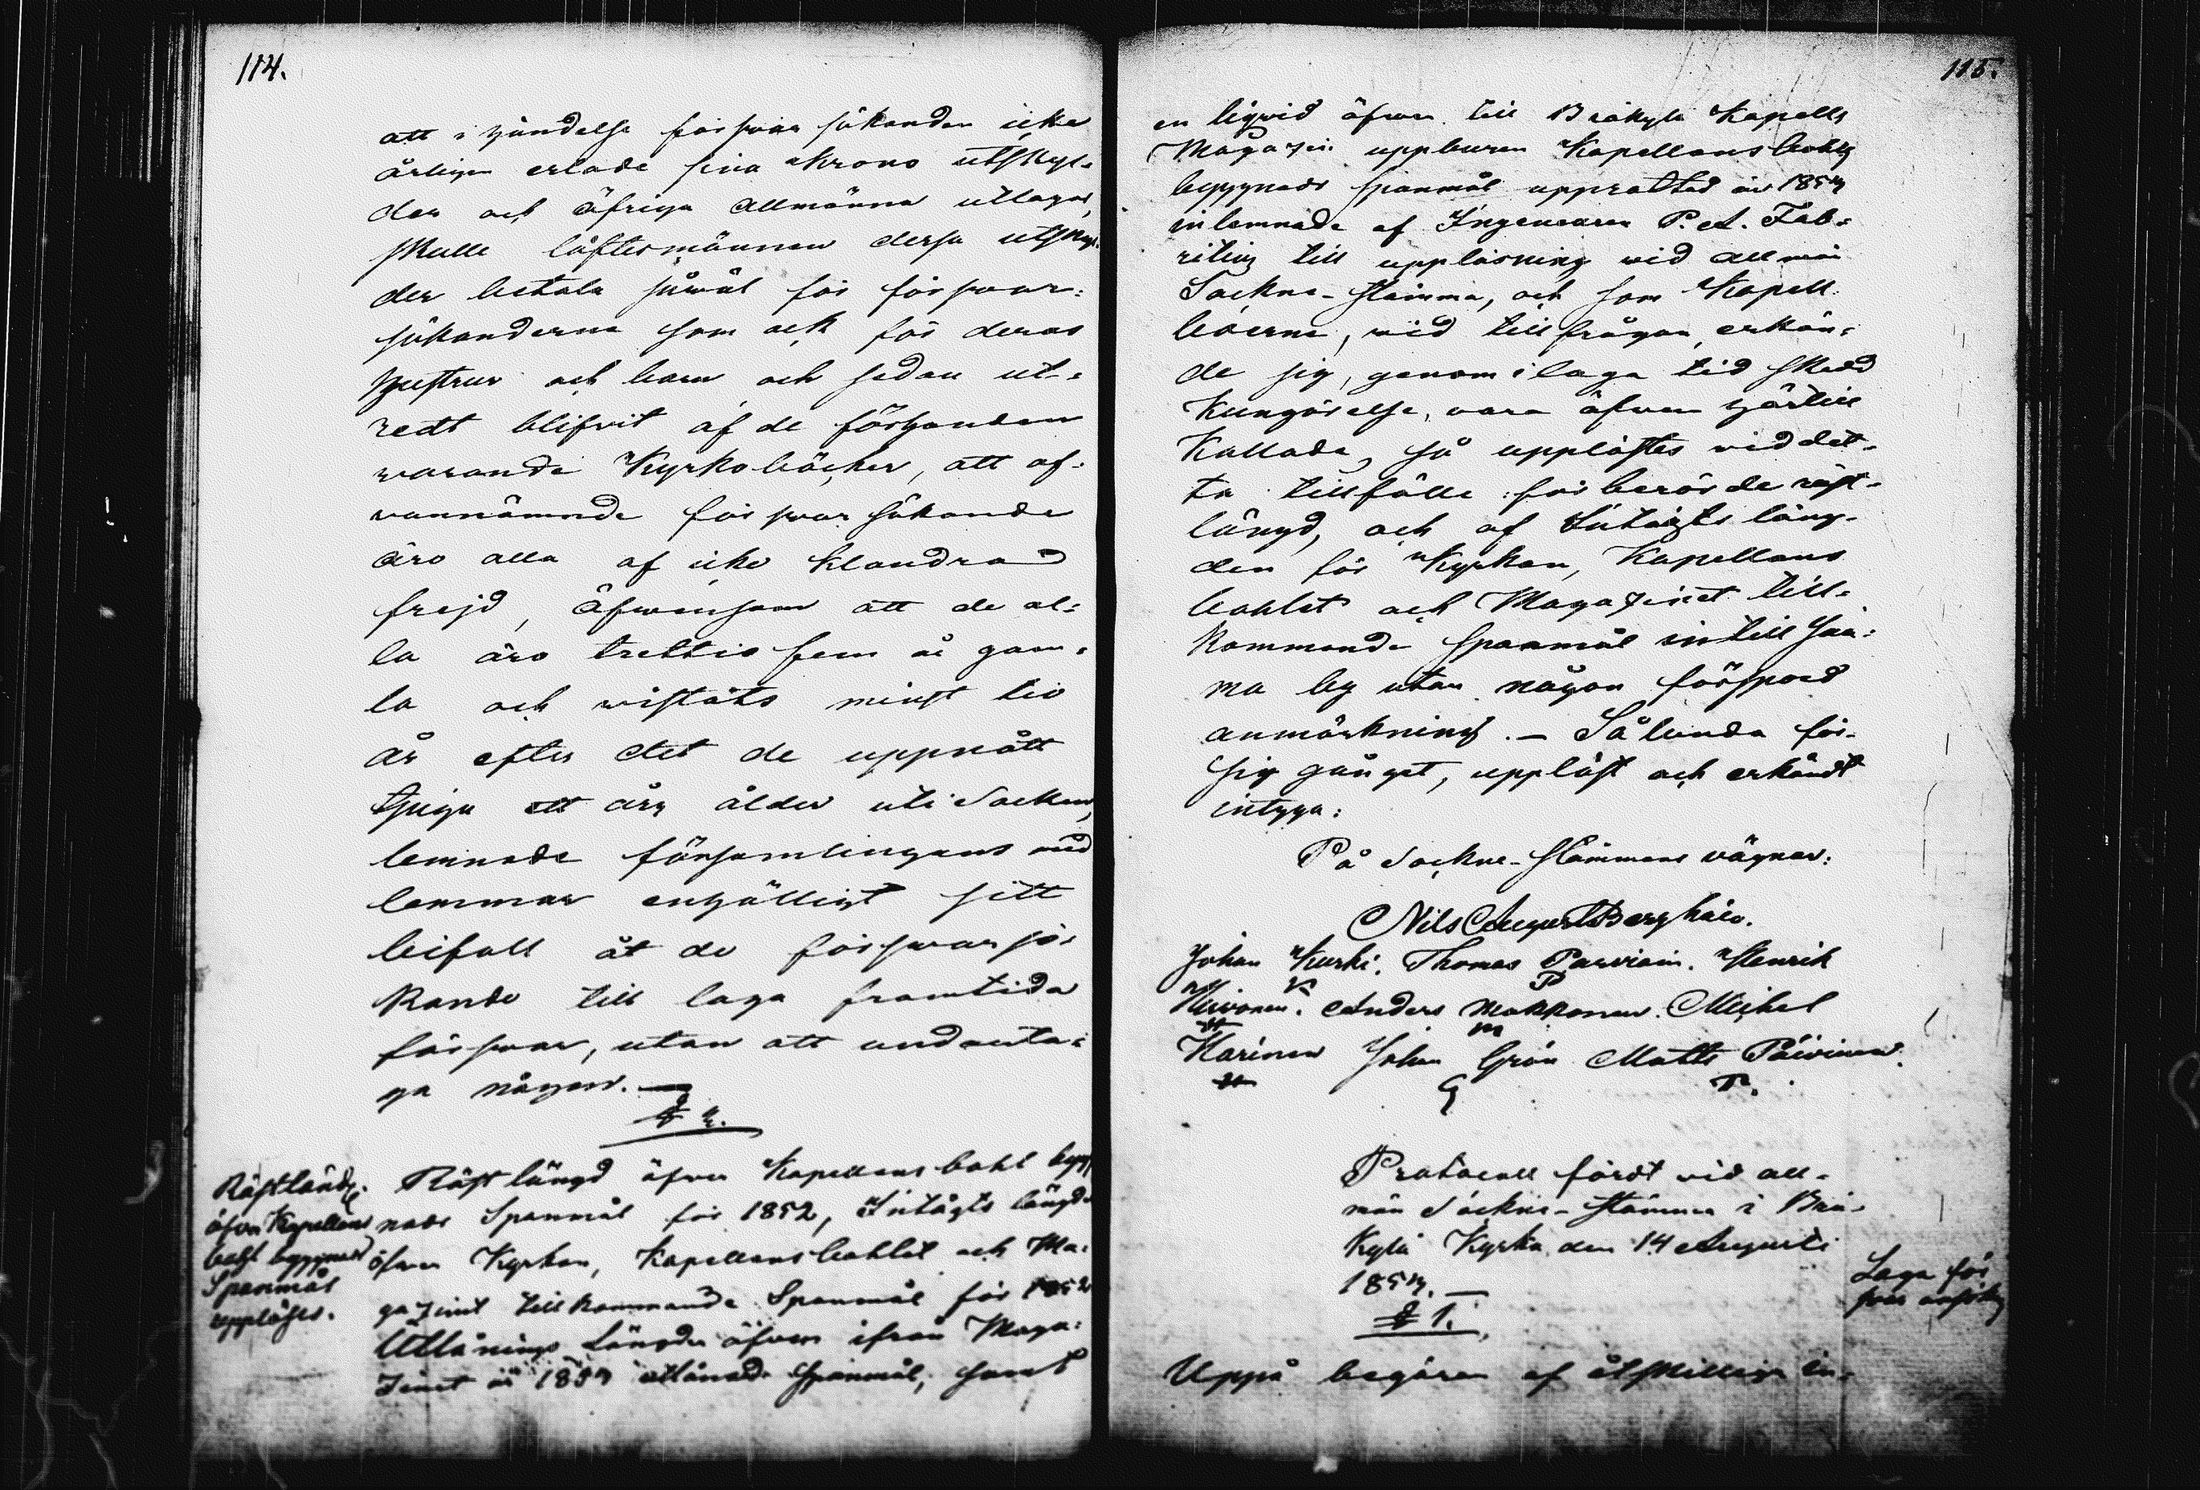 114.
att i händelse försvar sökanden icke
årligen erlade sina Krono utskyl-
der och öfriga allmänna utlagor,
skulle löftesmännen dessa utskyl-
der betala såwäl för försvar-
sökanderna som ock för deras
hustrur och barn och sedan ut-
redt blifvit af de förhanden
warande Kyrkoböcker, att of-
vannämnde försvar sökande
äro alla af icke klandrad
frejd, äfwensom att de al-
la äro trettio fem år gam-
la och wistats minst tio
år efter det de uppnått
tjugu ett års ålder uti Socknen,
lemnade församlingens med
lemmar enhälligt sitt
bifall åt de försvar sö-
kande till laga framtida
försvar, utan att undanta-
ga någon. —
§ 2.
Röstlängd
öfver Kapellans
bohl byggnad
Spanmål
upplästes.
Röst längd öfver Kapellans bohl bygg
nads Spanmål för 1852, Intägts längde
öfver Kyrkan, Kapellansbohlet och Ma-
gazinet tillkommande Spanmål för 1852
Utlånings Längden öfver ifrån Maga-
zinet år 1853 utlånad Spanmål, samt
115.
en liqvid öfver till Bräkylä Kapells
Magazin uppburen Kapellansbohls
byggnads spanmål upprättad år 1853
inlemnade af Ingeneuren P. A. Fab-
ritius till uppläsning wid allmän
Sockne-stämma, och som Kapell-
boerne, wid tillfrågan erkän-
de sig, genom i laga tid skedd
Kungörelse, vara äfwen härtill
Kallade, så upplästes wid det-
ta tillfälle förberörde röst-
längd, och af Intägts läng-
den för Kyrkan, Kapellans
bohlet och Magazinet till-
kommande Spanmål intill Saa-
ma by utan någon förspord
anmärkning. — Sålunda för-
sig gånget, uppläst och erkändt
intyga:
På Sockne-stämmans vägnar:
Nils August Bergh
Johan Kurki. Thomas Parviain. Henrik
K P
Hirvonen. Anders Makkonen. Michel
H M
Karinen Johan Grön Matts Päivinen.
G P.
Protocoll fördt vid all-
män Sockne-stämma i Brä-
kylä Kyrka den 14 Augusti
1853. —
§ 1.
Laga för
svar ansökn
Uppå begäran af åtskillige in-